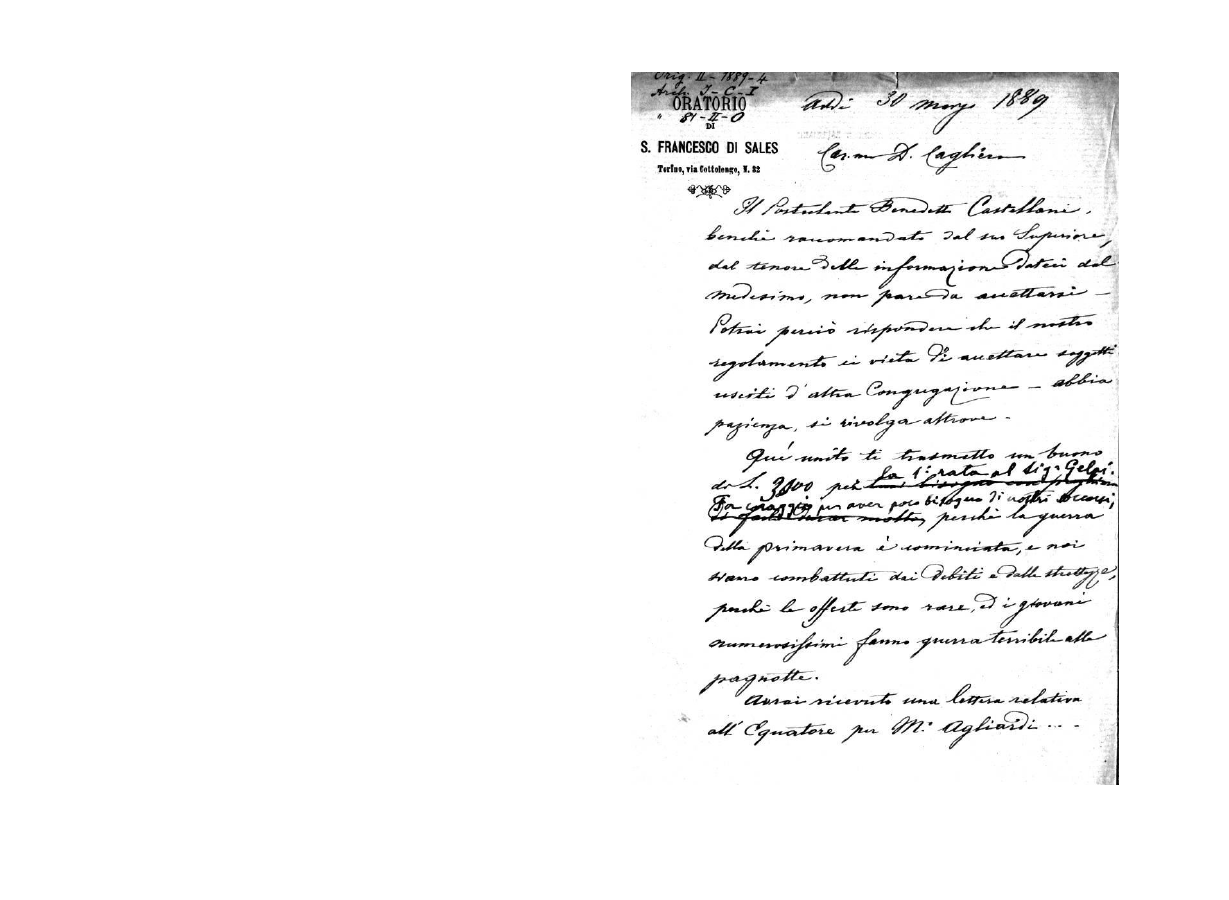 Orig. II - 1889-4
Arch. I - C - I
ORATORIO
" 81-II-0
DI
S. FRANCESCO DI SALES
Torino, via Cottolengo, N. 32
Addì 30 marzo 1889
Car.mo D. Cagliero
Il Postulante Benedetto Castellani,
benchè raccomandato dal suo Superiore,
dal tenore delle informazione dateci dal
medesimo, non pare da accettarsi —
Potrai perciò rispondere che il nostro
regolamento ci vieta di accettare soggetti
usciti d'altra Congregazione — abbia
pazienza, si rivolga altrove -
Qui unito ti trasmetto un buono
la 1ª rata al Sigr Gelpi.
da L. 3000 per
Fa coraggio per aver poco bisogno di nostri soccorsi,
perchè la guerra
della primavera è cominciata, e noi
siamo combattuti dai debiti e dalle strettezze,
perchè le offerte sono rare, ed i giovani
numerosissimi fanno guerra terribile alle
pagnotte.
Avrai ricevuto una lettera relativa
all'Equatore per Mr Agliardi ...